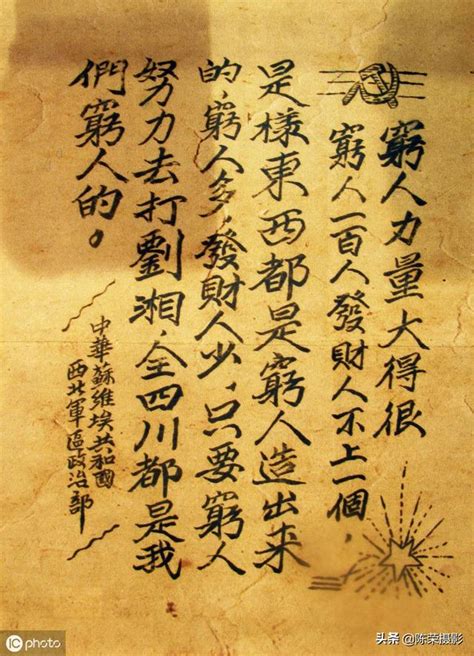 窮人力量大得很
窮人一百人發財人不上一個，
是樣東西都是窮人造出来
的，窮人多，發財人少，只要窮人
努力去打劉湘，全四川都是我
們窮人的。
中華蘇維埃共和國
西北軍區政治部
iC photo
头条 @陈荣摄影